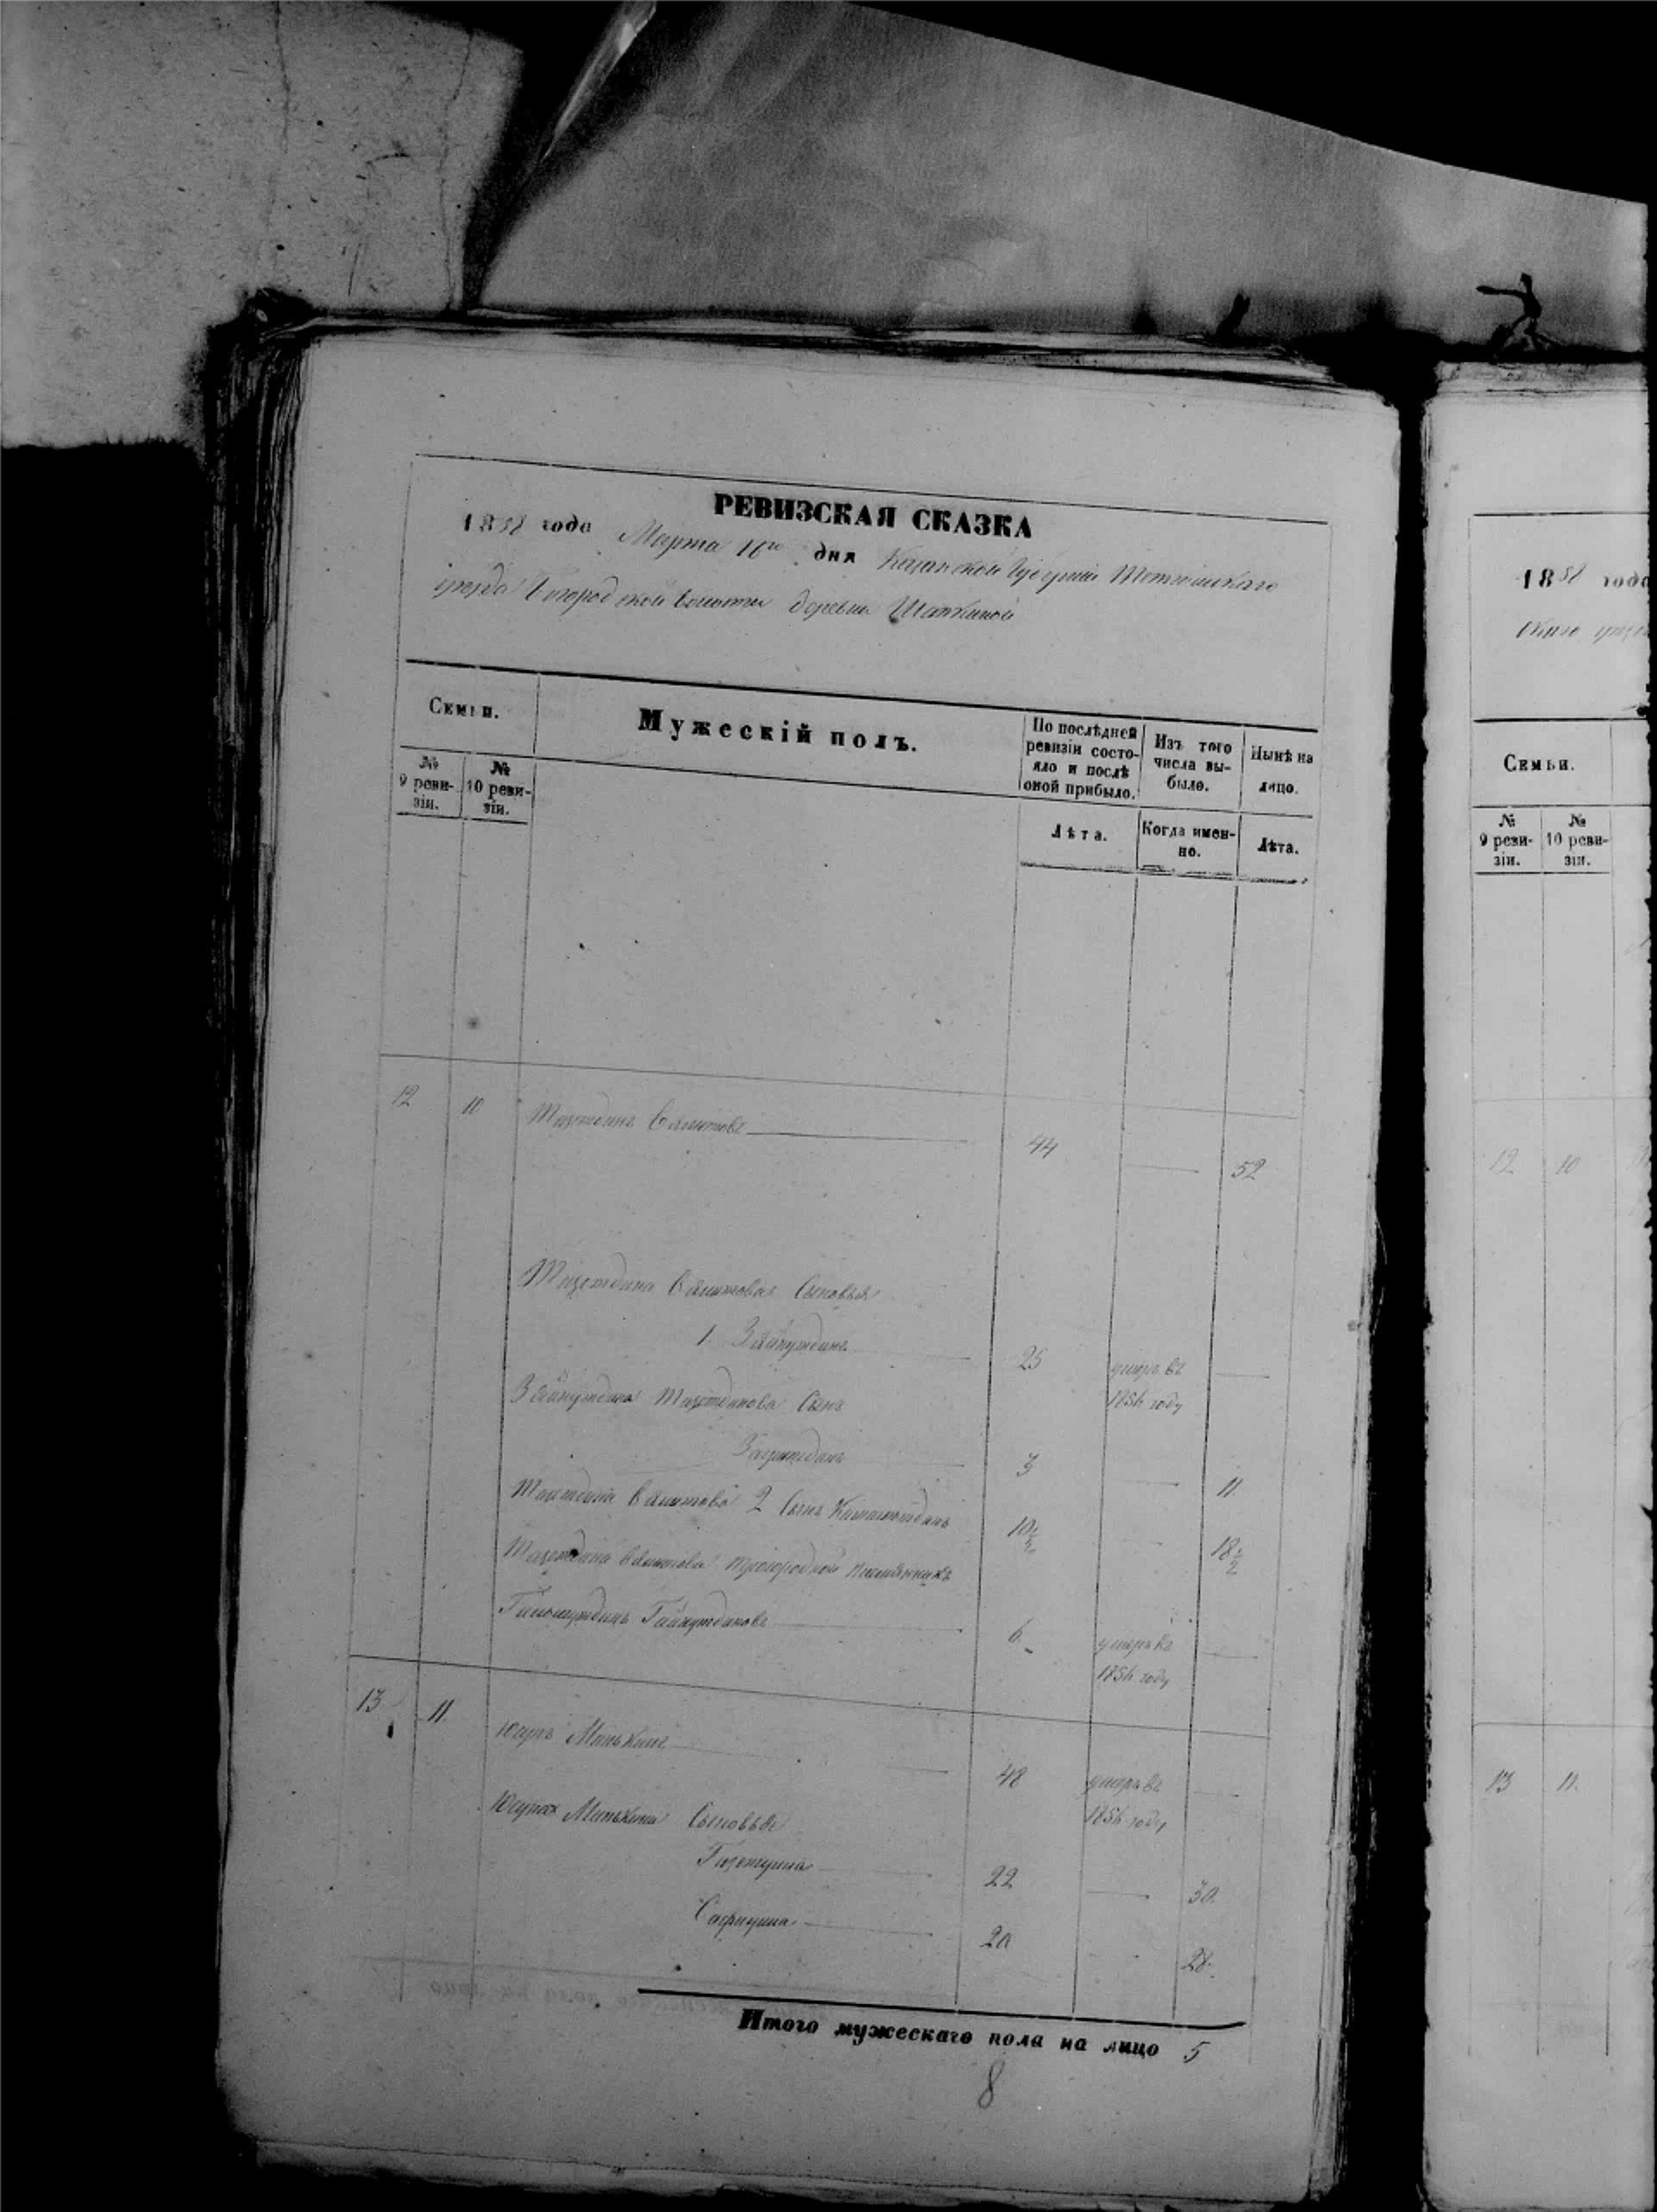 РЕВИЗСКАЯ СКАЗКА
1858 года Марта 10го дня Казанской Губернии Тетюшскаго
уезда Богородской волости деревни Шапкиной
Семьи.
Мужескій полъ.
По послѣдней ревизіи состояло и послѣ оной прибыло.
Изъ того числа выбыло.
Нынѣ на лицо.
№ 9 ревизіи.
№ 10 ревизіи.
Лѣта.
Когда именно.
Лѣта.
12 10 Тазетдинъ Валитовъ 44 52
Тазетдина Валитова Сыновья
1. Зайнутдинъ 25 умеръ въ
1856 году
Зайнутдина Тазетдинова Сынъ
3 11.
Тазетдина Валитова 2 Сынъ 10½ 18½
Тазетдина Валитова троюродной племянникъ
Гайнутдиновъ 6. умеръ въ
1856 году
13 11. Юсупъ Минькинъ 48 умеръ въ
1856 году
Юсупа Минькина Сыновья
22 30.
20 28.
Итого мужескаго пола на лицо 5
8
1858 года
Семьи.
№ 9 ревизіи.
№ 10 ревизіи.
12 10
13 11.